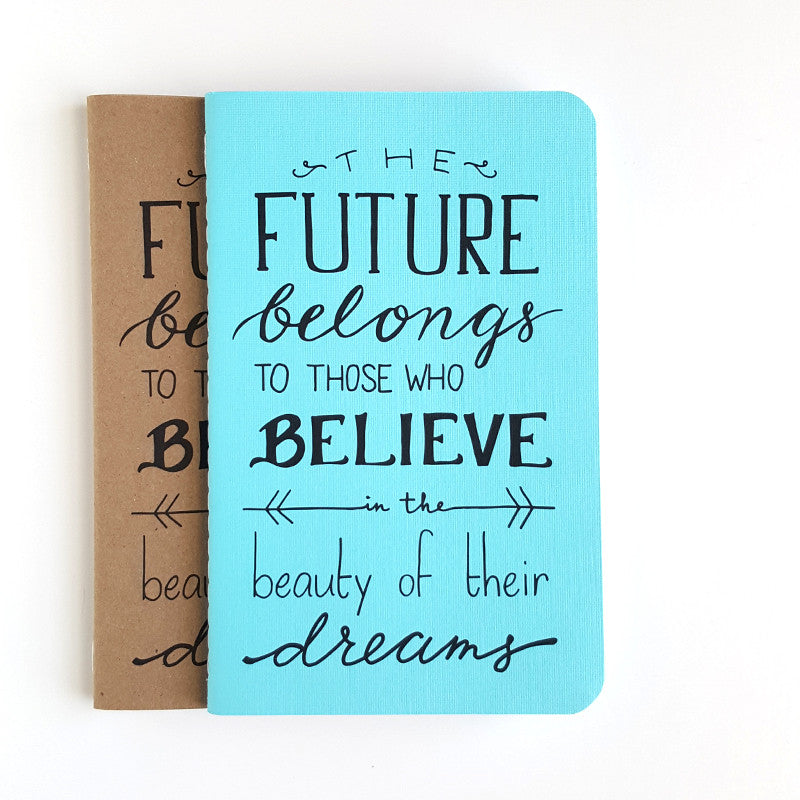 THE
FUTURE
belongs
TO THOSE WHO
BELIEVE
in the
beauty of their
dreams
FU
be
TO T
BE
bea
d